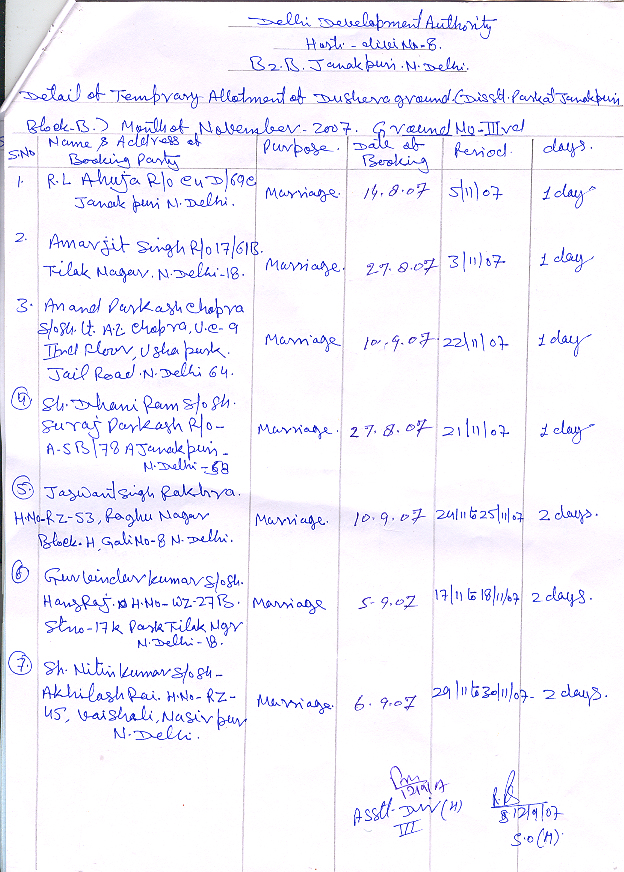 Delhi Development Authority
Horti- divi No-8.
B2.B. Janakpuri. N. Delhi.
Detail of Temprary Allotment of Dushera ground. (Disstt. Park at Janakpuri
Block-B.) Month of November-2007. Ground No-IIIrd
S.No Name & Address of Booking Party Purpose. Date of Booking Period. days.
1. R.L Ahuja R/o C4 D/69C Marriage. 14.8.07 5/11/07 1 day
Janak puri N. Delhi.
2. Amarjit Singh R/o 17/61B. Marriage. 27.8.07 3/11/07 1 day
Tilak Nagar. N. Delhi-18.
3. Anand Parkash Chopra
S/o Sh. Lt. A.L. Chopra, U.C-9 Marriage 10.9.07 22/11/07 1 day
IInd Floor, Usha park.
Jail Road. N. Delhi 64.
4. Sh. Dhani Ram S/o Sh.
Suraj Parkash R/o- Marriage. 27.8.07 21/11/07 1 day
A-5B/78 A Janakpuri-
N. Delhi-58
5. Jaswant Singh Rakhra.
H.No-RZ-53, Raghu Nagar Marriage. 10.9.07 24/11 to 25/11/07 2 days.
Block-H, Gali No-8 N. Delhi.
6 Gurvinder Kumar S/o Sh.
Hans Raj. H.No-WZ-27B. Marriage 5-9.07 17/11 to 18/11/07 2 days.
St no-17k Park Tilak Ngr
N. Delhi-18.
7. Sh. Nitin Kumar S/o Sh-
Akhilash Rai. H.No-RZ- Marriage. 6.9.07 29/11 to 30/11/07- 2 days.
45, Vaishali, Nasirpur
N. Delhi.
12/9/07
Asstt. Dir (H)
III
12/9/07
S.O (H)